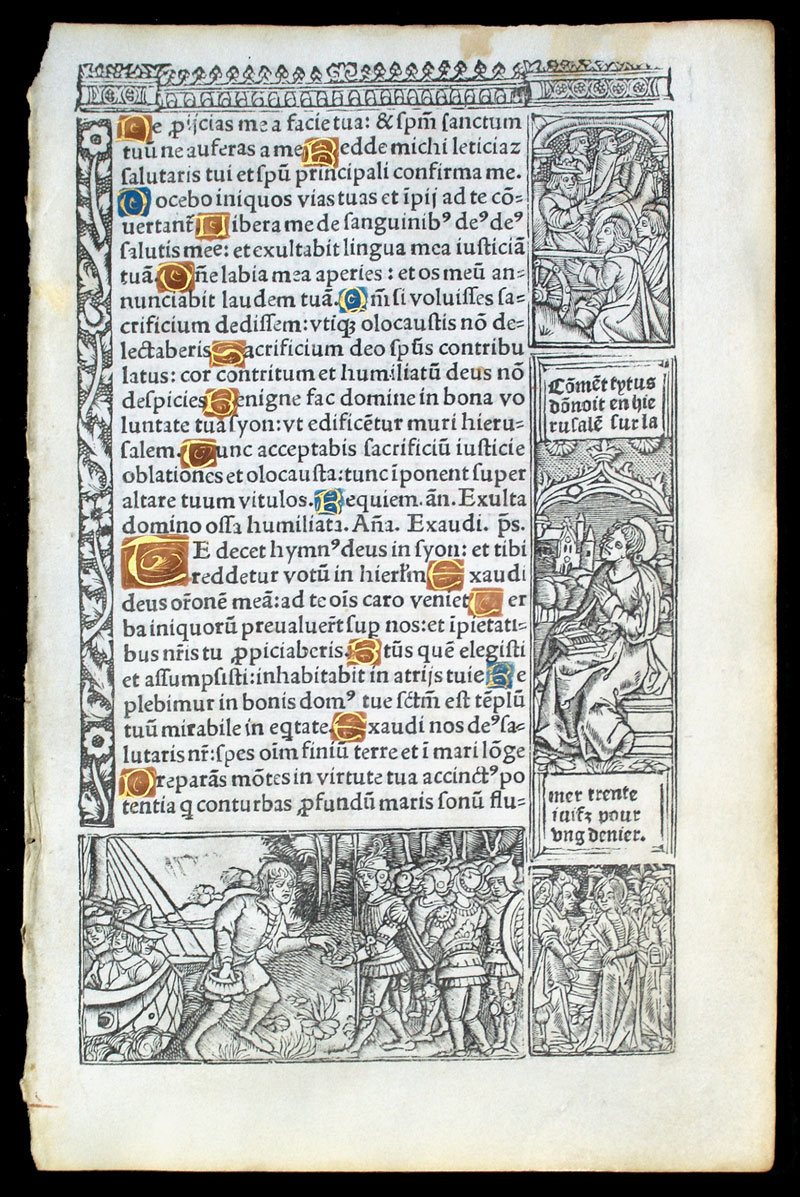 Ne ꝓijcias me a facie tua: & ſpm̄ ſanctum
tuū ne auferas a me Redde michi leticiaz
ſalutaris tui et ſpū principali confirma me.
Docebo iniquos vias tuas et īpij ad te cō⸗
uertant̄ Libera me de ſanguinibꝰ deꝰ deꝰ
ſalutis mee: et exultabit lingua mea iuſticiā
tuā. Dn̄e labia mea aperies : et os meū an⸗
nunciabit laudem tuā. Qm̄ ſi voluiſſes ſa⸗
crificium dediſſem: vtiqꝫ olocauſtis nō de⸗
lectaberis Sacrificium deo ſpūs contribu
latus: cor contritum et humiliatū deus nō
deſpicies Benigne fac domine in bona vo
luntate tua ſyon: vt edificētur muri hieru⸗
ſalem. Tunc acceptabis ſacrificiū iuſticie
oblationes et olocauſta: tunc īponent ſuper
altare tuum vitulos. Requiem. ān. Exulta
domino oſſa humiliata. Añа. Exaudi. p̄s.
TE decet hymnꝰ deus in ſyon: et tibi
reddetur votū in hierłm Exaudi
deus or̄onē meā: ad te oīs caro veniet Ver
ba iniquorū preualuer̄t ſup nos: et īpietati⸗
bus nr̄is tu ꝓpiciaberis. Btūs quē elegiſti
et aſſumpſiſti: inhabitabit in atrijs tuis Re
plebimur in bonis domꝰ tue ſctm̄ eſt tēplū
tuū mirabile in eqtate Exaudi nos deꝰ ſa⸗
lutaris nr̄: ſpes oīm finiū terre et ī mari lōge
Preparās mōtes in virtute tua accinctꝰ po
tentia q conturbas ꝓfundū maris ſonū flu⸗
Cōmēt tytus
dōnoit en hie
ruſalē ſur la
mer trente
iuifz pour
vng denier.